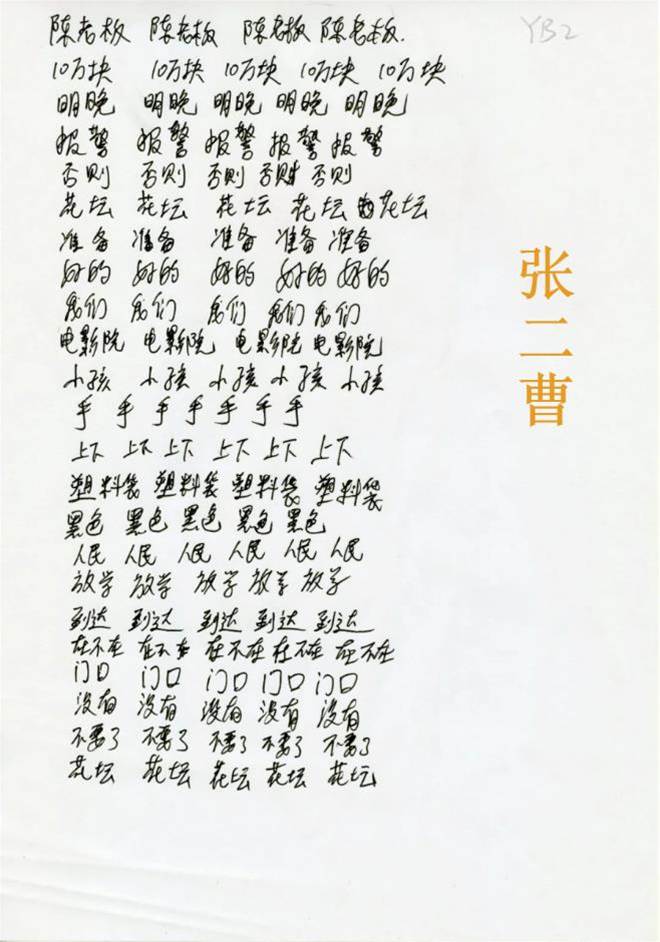 陈老板 陈老板 陈老板 陈老板.
YB2
10万块 10万块 10万块 10万块 10万块
明晚 明晚 明晚 明晚 明晚
报警 报警 报警 报警 报警
否则 否则 否则 否则 否则
花坛 花坛 花坛 花坛 花坛
准备 准备 准备 准备 准备
好的 好的 好的 好的 好的
我们 我们 我们 我们 我们
电影院 电影院 电影院 电影院
小孩 小孩 小孩 小孩 小孩
手 手 手 手 手 手 手
上下 上下 上下 上下 上下 上下
塑料袋 塑料袋 塑料袋 塑料袋
黑色 黑色 黑色 黑色 黑色
人民 人民 人民 人民 人民 人民
放学 放学 放学 放学 放学
到达 到达 到达 到达 到达
在不在 在不在 在不在 在不在 在不在
门口 门口 门口 门口 门口
没有 没有 没有 没有 没有
不要了 不要了 不要了 不要了 不要了
花坛 花坛 花坛 花坛 花坛
张二曹